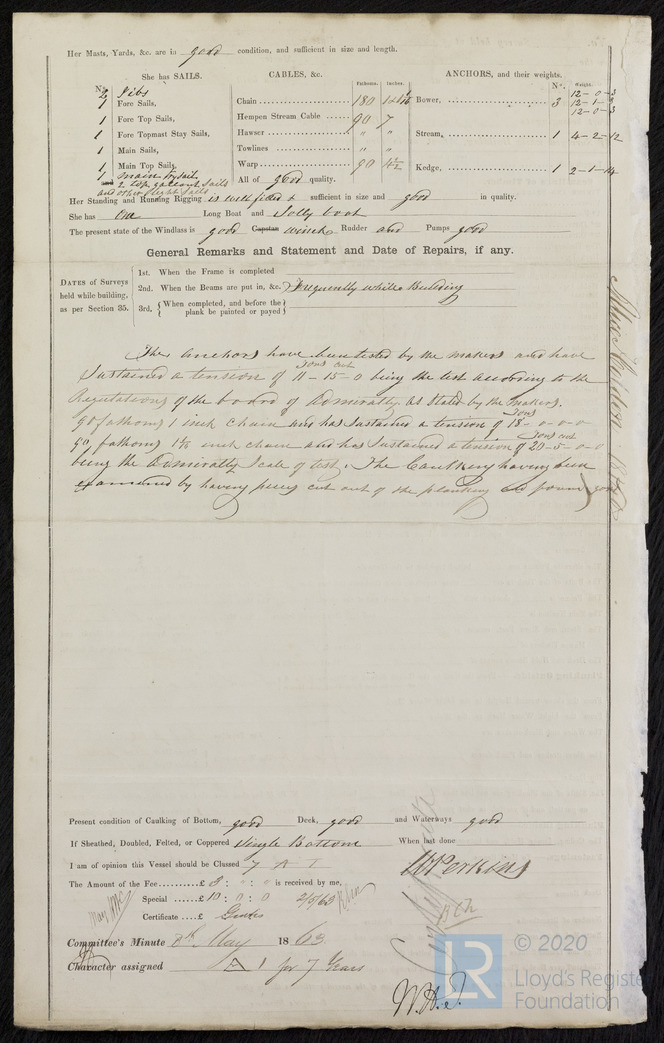 Her Masts, Yards, &c. are in good condition, and sufficient in size and length.
She has SAILS.
CABLES, &c.
ANCHORS, and their weights.
Fathoms. Inches.
Nº. Weight.
No.
2 Jibs
1 Fore Sails,
1 Fore Top Sails,
1 Fore Topmast Stay Sails,
1 Main Sails,
1 Main Top Sails,
1 main trysail
and 2 top gallant Sails
and other light Sails
Chain 180 1+1 1/16
Hempen Stream Cable 90 7
Hawser " "
Towlines " "
Warp 90 4½
All of good quality.
Bower, 3 12-0-3
12-1-3
12-0-3
Stream, 1 4-2-12
Kedge, 1 2-1-14
Her Standing and Running Rigging is well fitted & sufficient in size and good in quality.
She has One Long Boat and Jolly boat
The present state of the Windlass is good Capstan winch Rudder and Pumps good
General Remarks and Statement and Date of Repairs, if any.
DATES of Surveys held while building, as per Section 35.
1st. When the Frame is completed
2nd. When the Beams are put in, &c. Frequently while Building
3rd. { When completed, and before the plank be painted or payed }
The anchors have been tested by the makers and have
Sustained a tension of 11-15-0 being the test according to the
tons cwt
Regulations of the board of Admiralty as Stated by the makers.
90 fathoms 1 inch chain and has sustained a tension of 18-0-0-0
Tons
90 fathoms 1 1/16 inch chain and has sustained a tension of 20-5-0-0
Tons cwt
being the Admiralty Scale of test. The Caulking having been
examined by having pieces cut out of the planking and found good
Present condition of Caulking of Bottom, good Deck, good and Waterways good
If Sheathed, Doubled, Felted, or Coppered Single Bottom When last done
I am of opinion this Vessel should be Classed 7 A 1
The Amount of the Fee £ 3 : " : " is received by me,
Special £ 10 : 0 : 0 2/5/63
Certificate £ Gratis
W Perkins
Committee's Minute 8th May 1863
Character assigned A 1 for 7 Years
W.H.T.
LR
© 2020
Lloyd's Register
Foundation